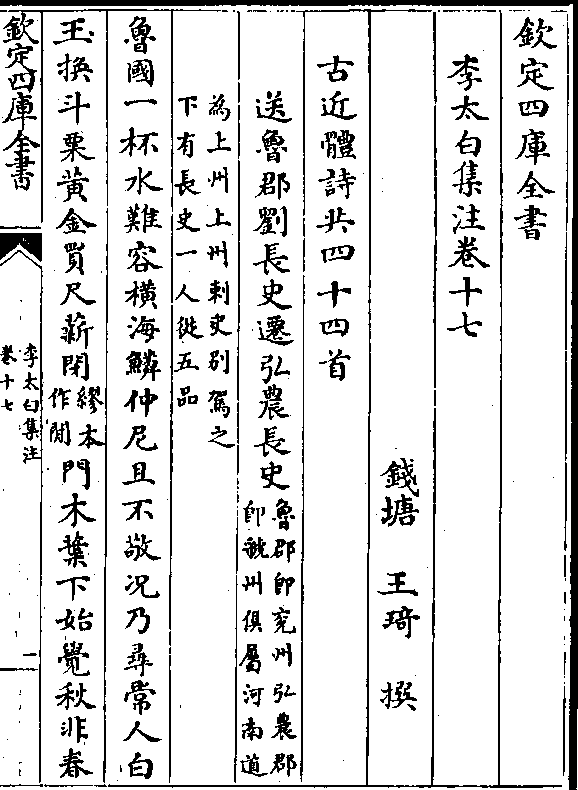 欽定四庫全書
李太白集注卷十七
錢塘　王琦　撰
古近體詩共四十四首
送魯郡劉長史遷弘農長史魯郡即兗州弘農郡即虢州俱屬河南道
為上州上州刺史別駕之下有長史一人從五品
魯國一杯水難容橫海鱗仲尼且不敬况乃尋常人白
玉換斗粟黄金買尺薪閉繆本作閒門木葉下始覺秋非春
欽定四庫全書
李太白集注
卷十七
一